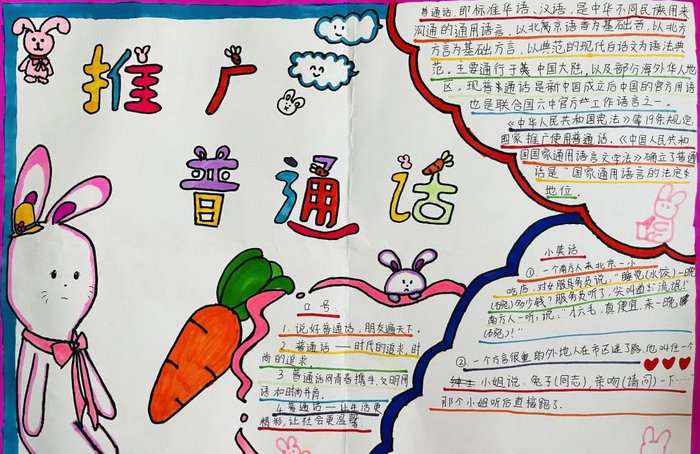 推广
普通话
普通话,即标准华语、汉语,是中华不同民族用来
沟通的通用语言,以北京语音为基础音,以北方
方言为基础方言,以典范的现代白话文为语法典
范。主要通行于中国大陆,以及部分海外华人地
区。现普通话是新中国成立后中国的官方用语
也是联合国六中官方工作语言之一。
《中华人民共和国宪法》第19条规定
国家推广使用普通话。《中国人民共和
国国家通用语言文字法》确立了普通
话是“国家通用语言的法定
地位.
小笑话
①、一个南方人来北京一小
吃店,对女服务员说:“睡觉(水饺)一晚
(碗)多少钱?服务员听了,尖叫道:“流氓!
南方人一听,说:“六毛,真便宜,来一晚
(碗)!”
②、一个方言很重的外地人在市区迷了路,他叫住一个
小姐说:兔子(同志),亲吻(请问)一下……
那个小姐听后直接跑了.
口号:
1.说好普通话,朋友遍天下.
2.普通话——时代的追求,时
尚的追求.
3.普通话同青春携手,文明用
语和时尚并肩.
4.普通话——让生活更
精彩,让社会更温馨